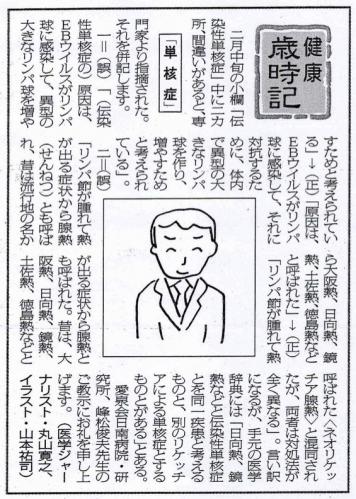 健康
歳時記
「単核症」
二月中旬の小欄「伝
染性単核症」中に二カ
所、間違いがあると、専
門家より指摘された。
それを併記します。
一＝(誤)「(伝染
性単核症の)原因は、
EBウイルスがリンパ
球に感染して、異型の
大きなリンパ球を増や
すためと考えられてい
る」→(正)「原因は、
EBウイルスがリンパ
球に感染して、それに
対抗するた
めに、体内
で異型の大
きなリンパ
球を作り、
増やすため
と考えられ
ている」。
二＝(誤)
「リンパ節が腫れて熱
が出る症状から腺熱
(せんねつ)とも呼ば
れ、昔は流行地の名か
ら大阪熱、日向熱、鏡
熱、土佐熱、徳島熱など
と呼ばれた」→(正)
「リンパ節が腫れて熱
が出る症状から腺熱と
も呼ばれた。昔は、大
阪熱、日向熱、鏡熱、
土佐熱、徳島熱などと
呼ばれた〈ネオリケッ
チア腺熱〉と混同され
たが、両者は対処法が
全く異なる」。言い訳
になるが、手元の医学
辞典には「日向熱、鏡
熱などと伝染性単核症
とを同一疾患と考える
ものと、別のリケッチ
アによる単核症とする
ものとがある」とある。
愛泉会日南病院・研
究所、峰松俊夫先生の
ご教示にお礼を申し上
げます。(医学ジャー
ナリスト・丸山寛之、
イラスト・山本祐司)